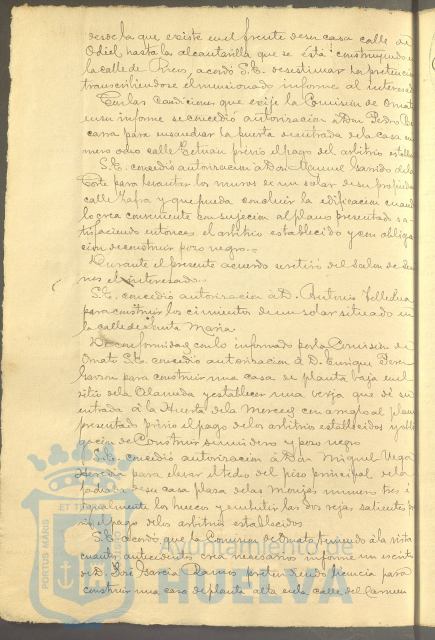 desde la que existe en el frente de su casa calle de
Odiel hasta la alcantarilla que se está construyendo en
la calle de Rico, acordó S.E. desestimar la pretención
transcribiendose el mencionado informe al interesado
En las condiciones que exije la Comision de Ornato
en su informe se concedió autorizacion a Don Pedro
para ensanchar la puerta de entrada de la casa nu-
mero ocho calle Tetuan previo el pago del arbitrio
S.E. concedió autorizacion a Don Manuel Garrido de la
Corte para levantar los muros de un solar de su propiedad
calle Zafra y que pueda concluir la edificacion cuando
lo crea conveniente con sujecion al plano presentado sa-
tisfaciendo entonces el arbitrio establecido y con obliga-
cion de construir pozo negro.
Durante el presente acuerdo se retiró del Salon de Sesio-
nes el interesado.
S.E. concedió autorizacion a D. Antonio
para construir los cimientos de un solar situado en
la calle de Santa Maria
De conformidad con lo informado por la Comision de
Ornato S.E. concedió autorizacion a D. Enrique Perez
Garzon para construir una casa de planta baja en el
sitio de la Alameda y establecer una verja que dé su
entrada á la Huerta de la Merced con arreglo al plano
presentado previo el pago de los arbitrios establecidos y obli-
gacion de construir sumidero y pozo negro
S.E. concedió autorizacion a Don Miguel Vega
Heredia para elevar el techo del piso principal de la
fachada de su casa plaza de las Monjas numero tres é
igualmente los huecos y embutir las dos rejas salientes pre-
vio el pago de los arbitrios establecidos
S.E. acordó que la Comision de Ornato teniendo á la vista
cuantos antecedentes crea necesarios informe un escrito
de D. José Garcia Ramos pretendiendo licencia para
construir una casa de planta alta en la calle del Carmen
PORTUS MARIS
ET TE
Ayuntamiento de
HUELVA